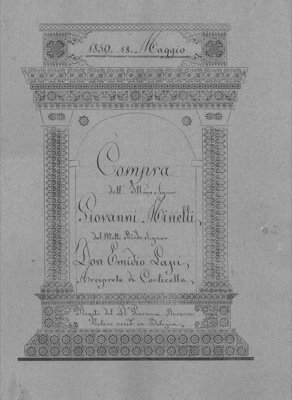 1850. 18. Maggio
Compra
dell' Illmo Signor
Giovanni Minelli,
dal Molto Rdo Signor
Don Emidio Lapi,
Arciprete di Corticella,
Rogato del Dr. Giovanni
Notaro resid. in Bologna